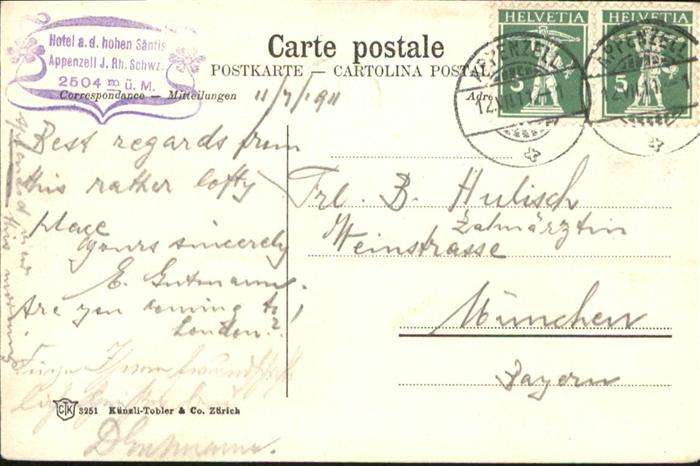 Hotel a. d. hohen Säntis
Appenzell J. Rh. Schwz.
2504 m ü. M.
Carte postale
POSTKARTE — CARTOLINA POSTAL
Correspondance — Mitteilungen
Adre
HELVETIA
5
HELVETIA
5
APPENZELL
APPENZELL
11/7/1911
Best regards from
this rather lofty
place
yours sincerely
E. Gutmann.
Are you coming to
London?
this morning
Frl. B. Hulisch
Zahnärztin
Weinstrasse
München
Bayern
CTK 3251 Künzli-Tobler & Co. Zürich